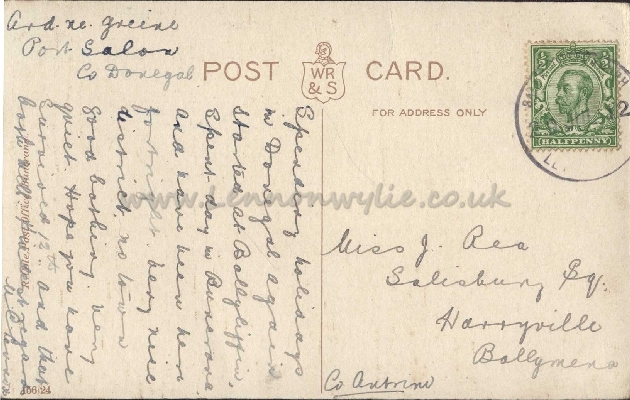 Ard. ne. greine
Port Salon
Co Donegal
POST CARD.
WR
& S
FOR ADDRESS ONLY
HALFPENNY
Spending holidays
in Donegal again
started at Ballyliffin,
Spent day in Buncrana
and have been here
fortnight. very nice
district. no town
good bathing. very
quiet. Hope you have
survived 12th and that
both well. Kindest regards
www.Lennonwylie.co.uk
Miss J. Rea
Salisbury Sq.
Harryville
Ballymena
Co Antrim